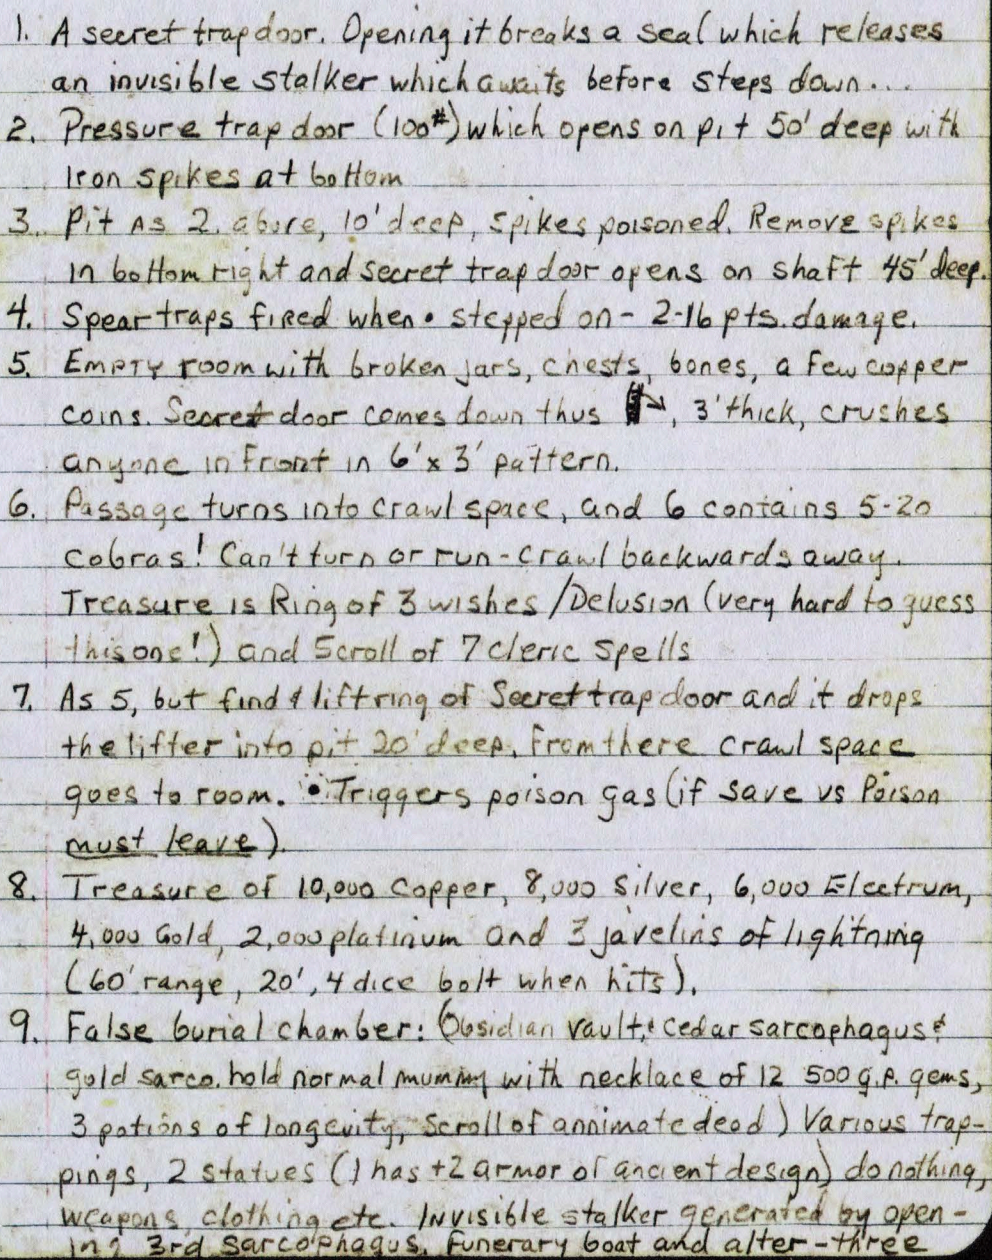 1. A secret trap door. Opening it breaks a seal which releases
an invisible stalker which awaits before steps down...
2. Pressure trap door (100#) which opens on pit 50' deep with
Iron spikes at bottom
3. Pit As 2. above, 10' deep, spikes poisoned. Remove spikes
in bottom right and secret trap door opens on shaft 45' deep.
4. Spear traps fired when • stepped on - 2-16 pts. damage.
5. Empty room with broken jars, chests, bones, a few copper
coins. Secret door comes down thus , 3' thick, crushes
anyone in Front in 6' x 3' pattern.
6. Passage turns into crawl space, and 6 contains 5-20
cobras! Can't turn or run - crawl backwards away.
Treasure is Ring of 3 wishes / Delusion (very hard to guess
this one!) and Scroll of 7 cleric spells
7. As 5, but find & lift ring of Secret trap door and it drops
the lifter into pit 20' deep. From there crawl space
goes to room. • Triggers poison gas (if save vs Poison
must leave).
8. Treasure of 10,000 copper, 8,000 Silver, 6,000 Electrum,
4,000 Gold, 2,000 platinum and 3 javelins of lightning
(60' range, 20', 4 dice bolt when hits).
9. False burial chamber: (Obsidian vault & cedar sarcophagus &
gold sarco. hold normal mummy with necklace of 12 500 g.p. gems,
3 potions of longevity, Scroll of annimate dead) Various trap-
pings, 2 statues (1 has +2 armor of ancient design) do nothing,
weapons, clothing etc. Invisible stalker generated by open-
ing 3rd sarcophagus. Funerary boat and alter - three